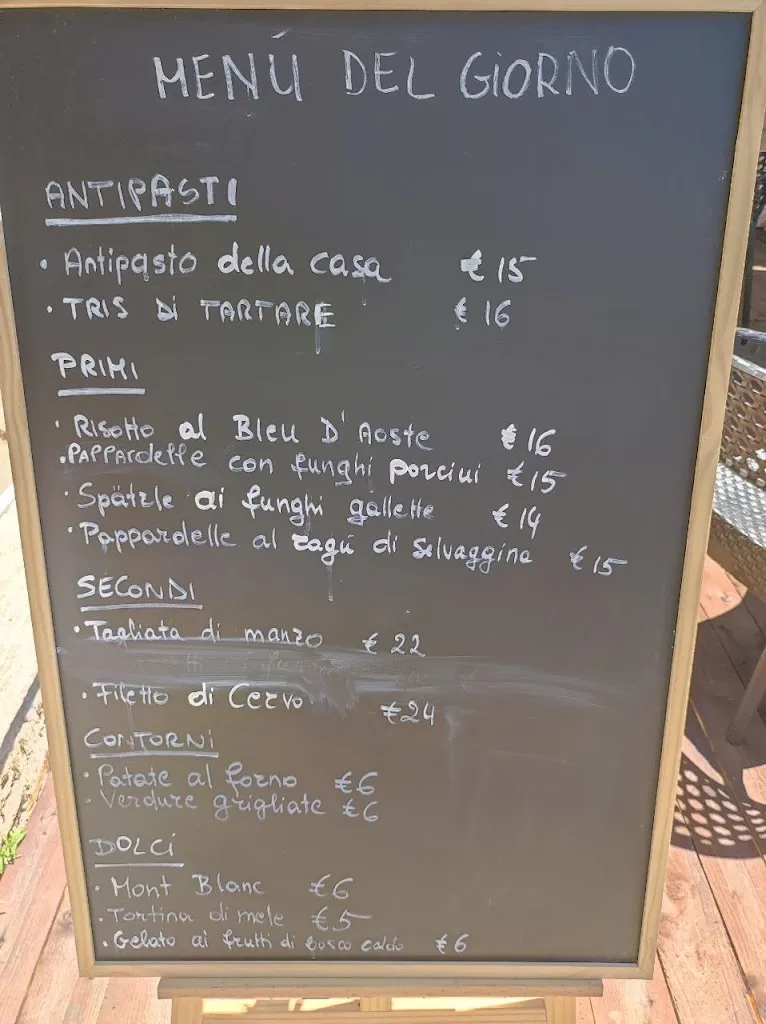 MENÚ DEL GIORNO
ANTIPASTI
• Antipasto della casa € 15
• TRIS Di TARTARE € 16
PRIMI
• Risotto al Bleu D'Aoste € 16
• PAPPARdelle con funghi porcini € 15
• Spätzle ai funghi gallette € 14
• Pappardelle al ragú di selvaggina € 15
SECONDI
• Tagliata di manzo € 22
• Filetto di Cervo €24
CONTORNi
• Patate al forno €6
• Verdure grigliate €6
DOLCi
• Mont Blanc €6
• Tortina di mele €5
• Gelato ai frutti di bosco caldo €6